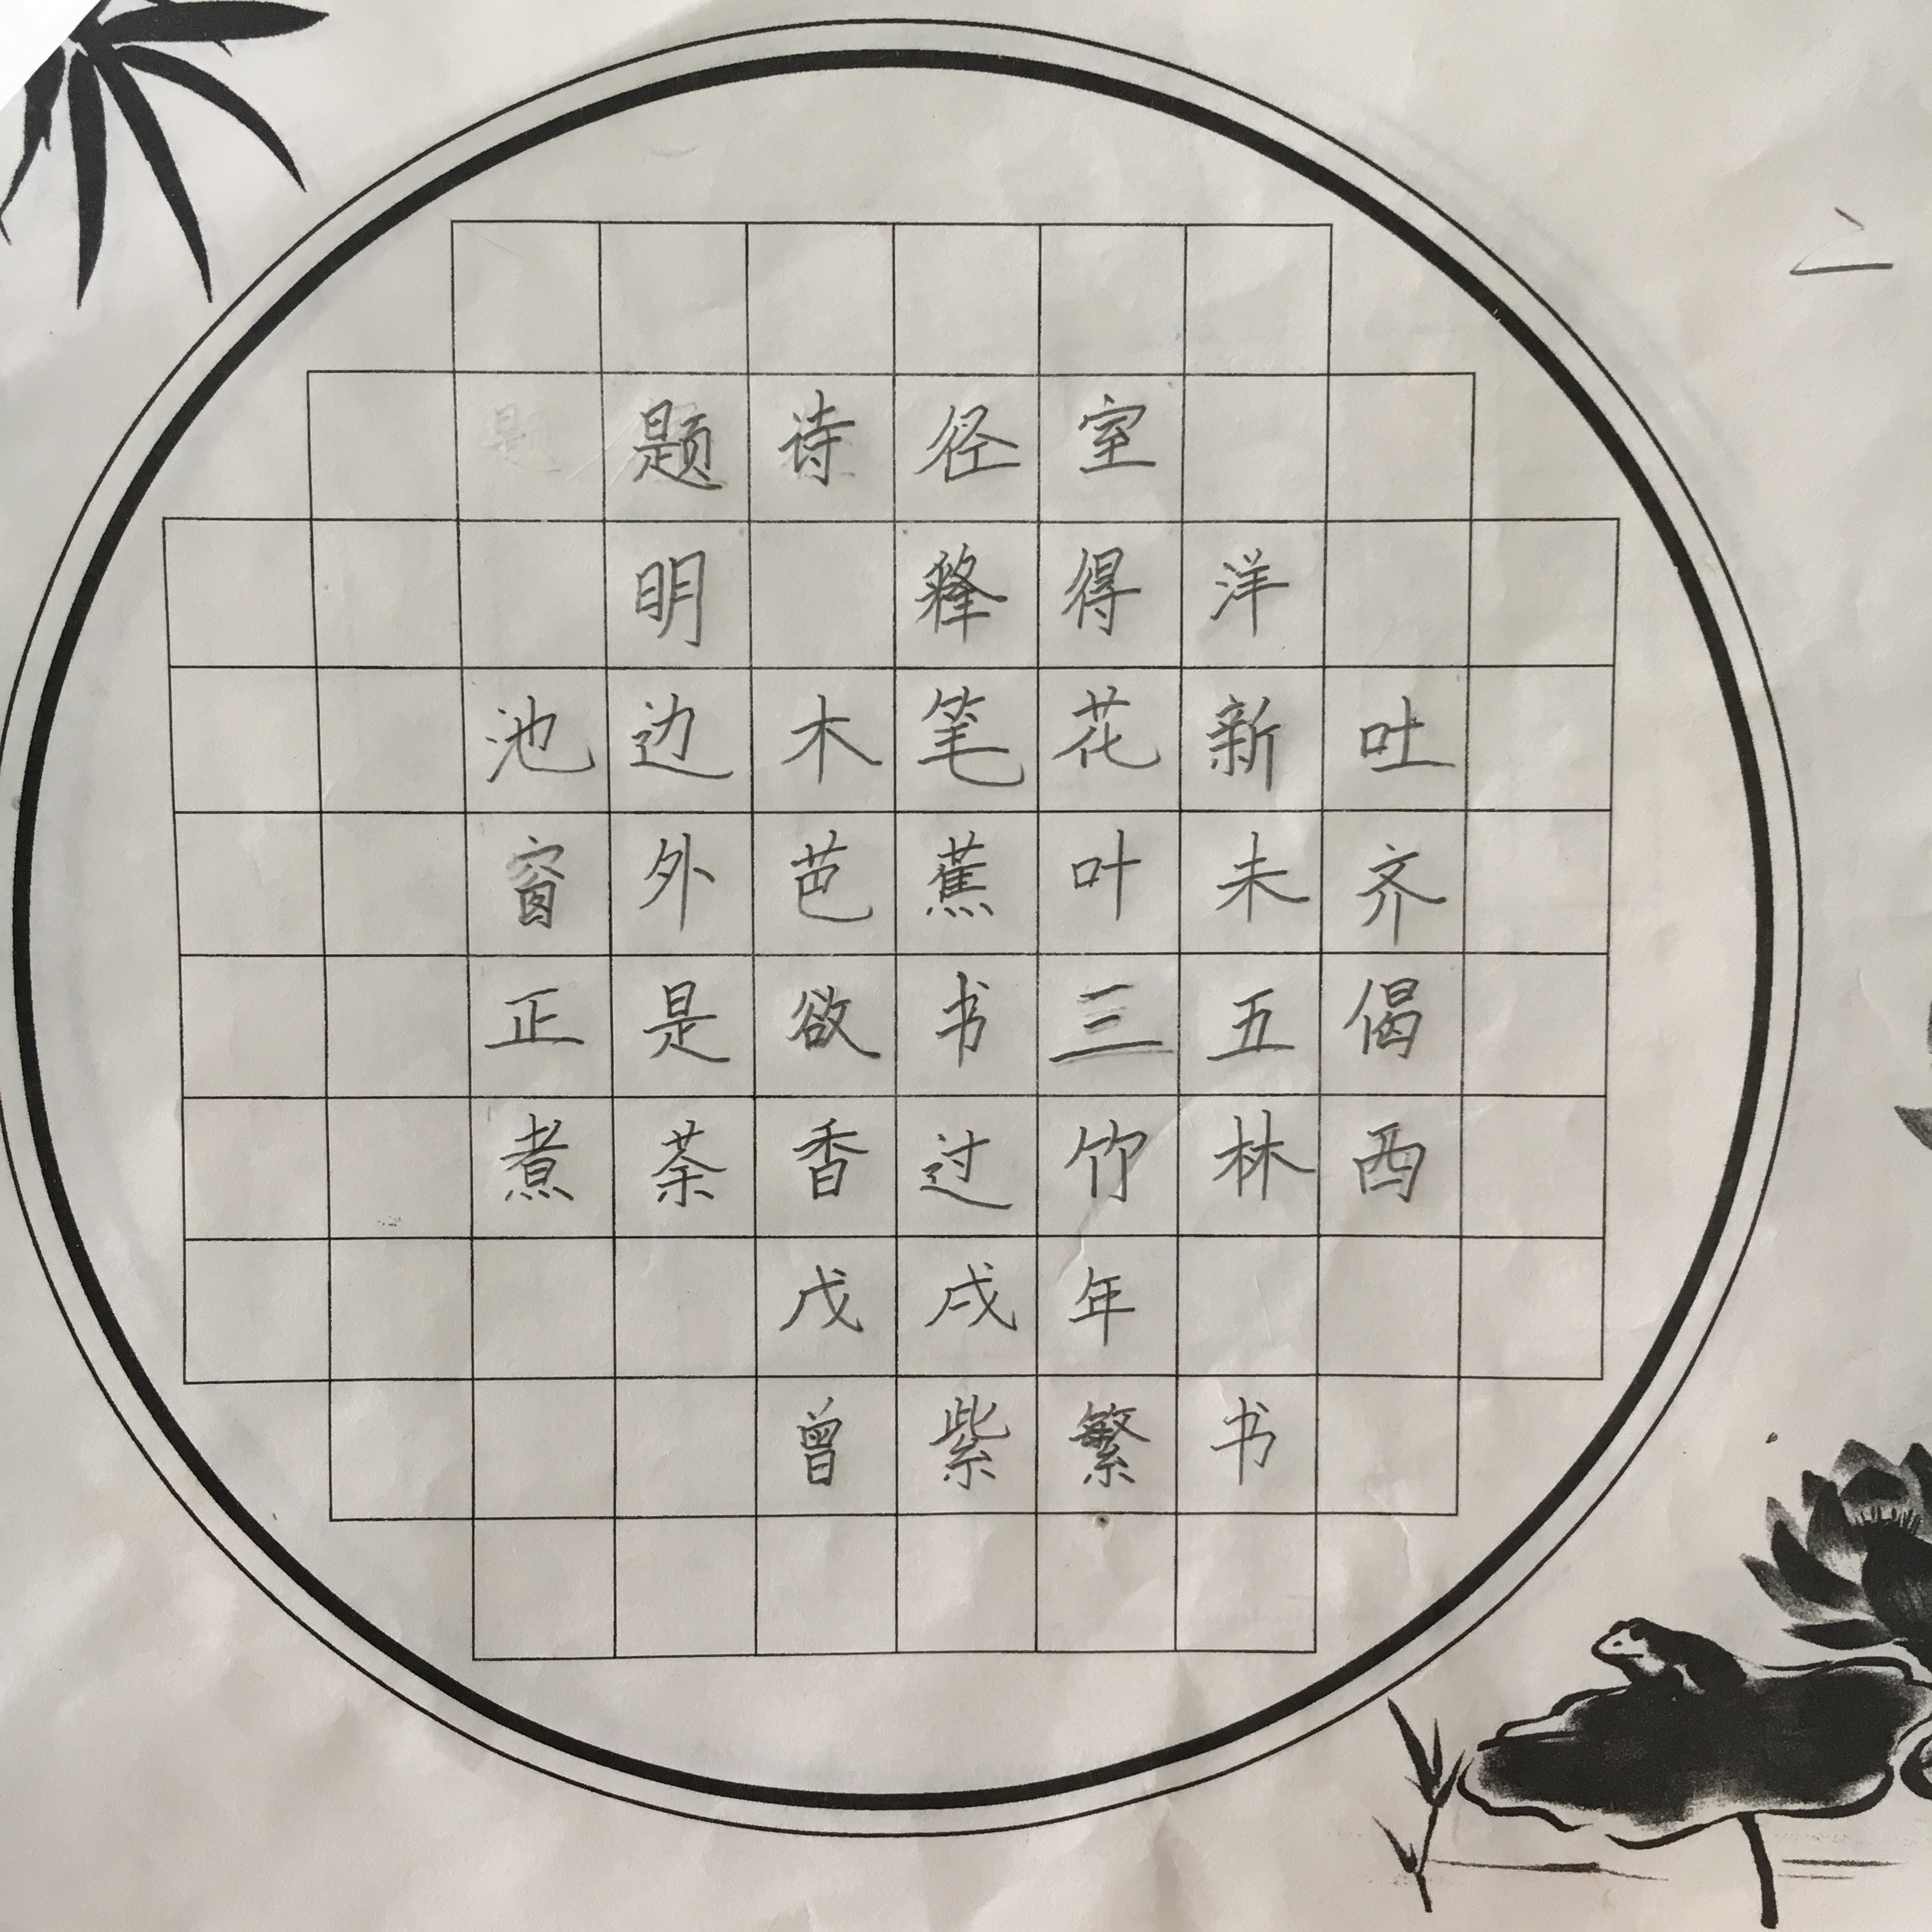 题诗径室
明 释得洋
池边木笔花新吐
窗外芭蕉叶未齐
正是欲书三五偈
煮茶香过竹林西
戊戌年
曾紫繁书